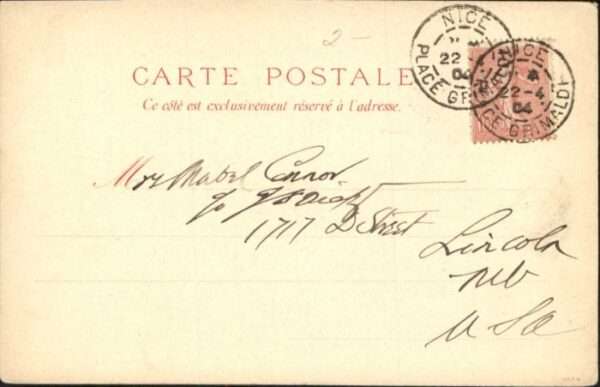 2-
NICE
22
04
PLACE GRIMALDI
NICE
22-4
04
PLACE GRIMALDI
CARTE POSTALE
Ce côté est exclusivement réservé à l'adresse.
Mrs Mabel Connor
c/o
1717 D Street
Lincoln
Neb
USA